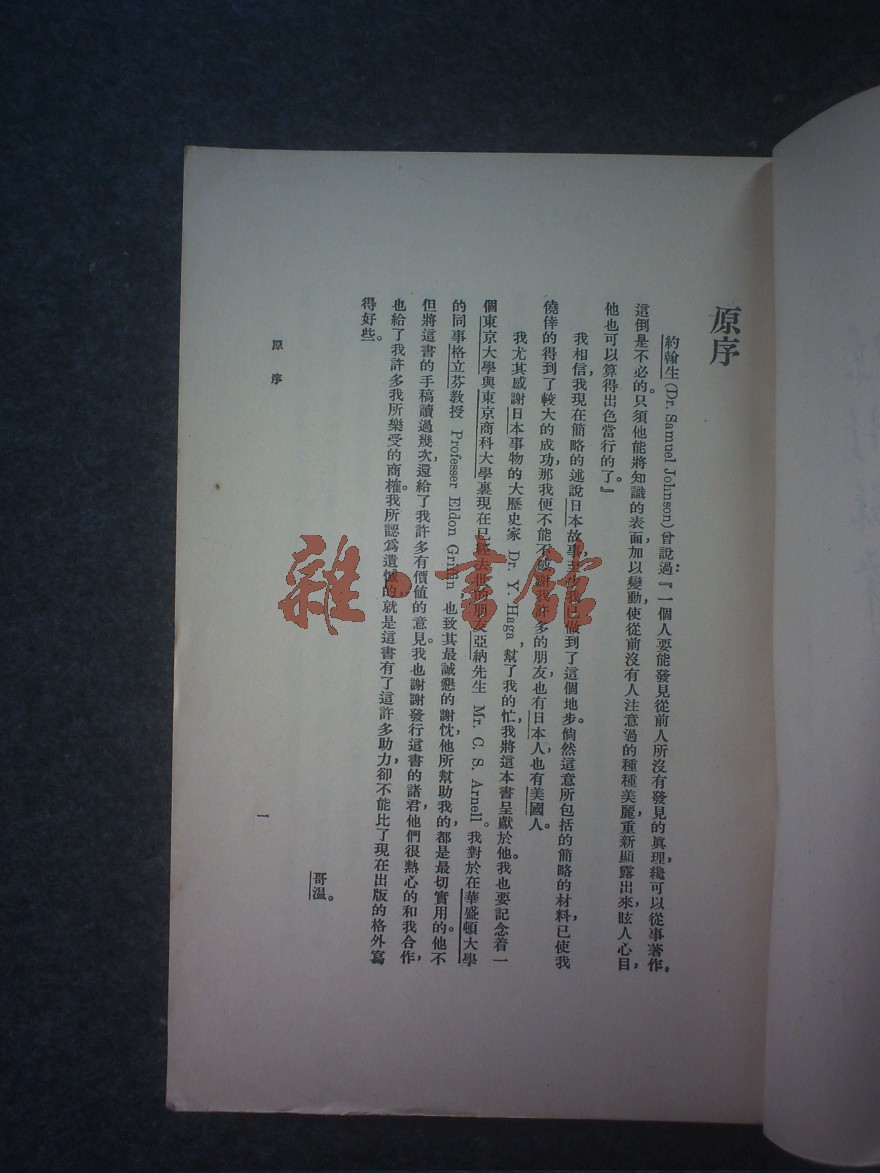 原序
約翰生(Dr. Samuel Johnson)曾說過：『一個人要能發見從前人所沒有發見的眞理，纔可以從事著作，
這倒是不必的。只須他能將知識的表面，加以變動，使從前沒有人注意過的種種美麗，重新顯露出來，眩人心目，
他也可以算得出色當行的了。』
我相信，我現在簡略的述說日本故事，我已做到了這個地步。倘然這意所包括的簡略的材料，已使我
僥倖的得到了較大的成功，那我便不能不感謝我許多的朋友，也有日本人，也有美國人。
我尤其感謝日本事物的大歷史家 Dr. Y. Haga，幫了我的忙，我將這本書呈獻於他。我也要記念着一
個東京大學與東京商科大學裏現在已經去世的朋友亞納先生 Mr. C. S. Arnell。我對於在華盛頓大學
的同事格立芬教授 Professer Eldon Griffin 也致其最誠懇的謝忱，他所幫助我的，都是最切實用的。他不
但將這書的手稿讀過幾次，還給了我許多有價值的意見。我也謝謝發行這書的諸君，他們很熱心的和我合作，
也給了我許多我所樂受的商榷。我所認爲遺憾的，就是這書有了這許多助力，卻不能比了現在出版的格外寫
得好些。
哥溫。
原序
一
雜書館